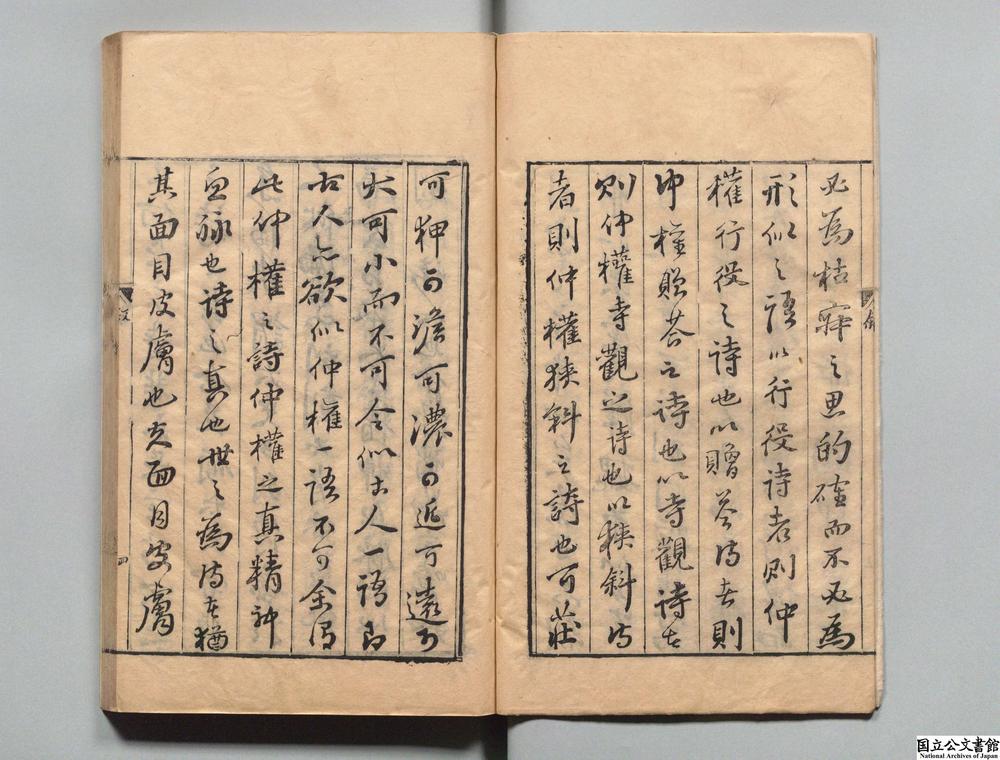 必為枯寂之思的確而不必為
形似之語以行役詩者則仲
權行役之詩也以贈荅詩者則
仲權贈荅之詩也以寺觀詩者
則仲權寺觀之詩也以狹斜詩
者則仲權狹斜之詩也可莊
可狎可澹可濃可近可遠可
大可小而不可令似古人一語即
古人亦欲似仲權一語不可余得
此仲權之詩仲權之真精神
血脉也詩之真也世之為詩者猶
其面目皮膚也夫面目皮膚
叙
四
国立公文書館
National Archives of Japan